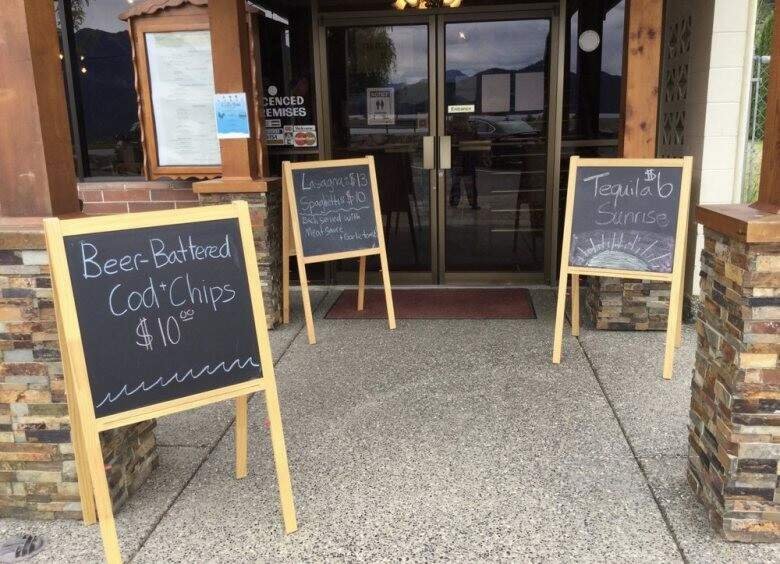 Beer-Battered
Cod + Chips
$10.00
Lasagna $13
Spaghetti $10
Both served with
Meat Sauce
+ Garlic toast
Tequila $6
Sunrise
CENCED
EMISES
Entrance